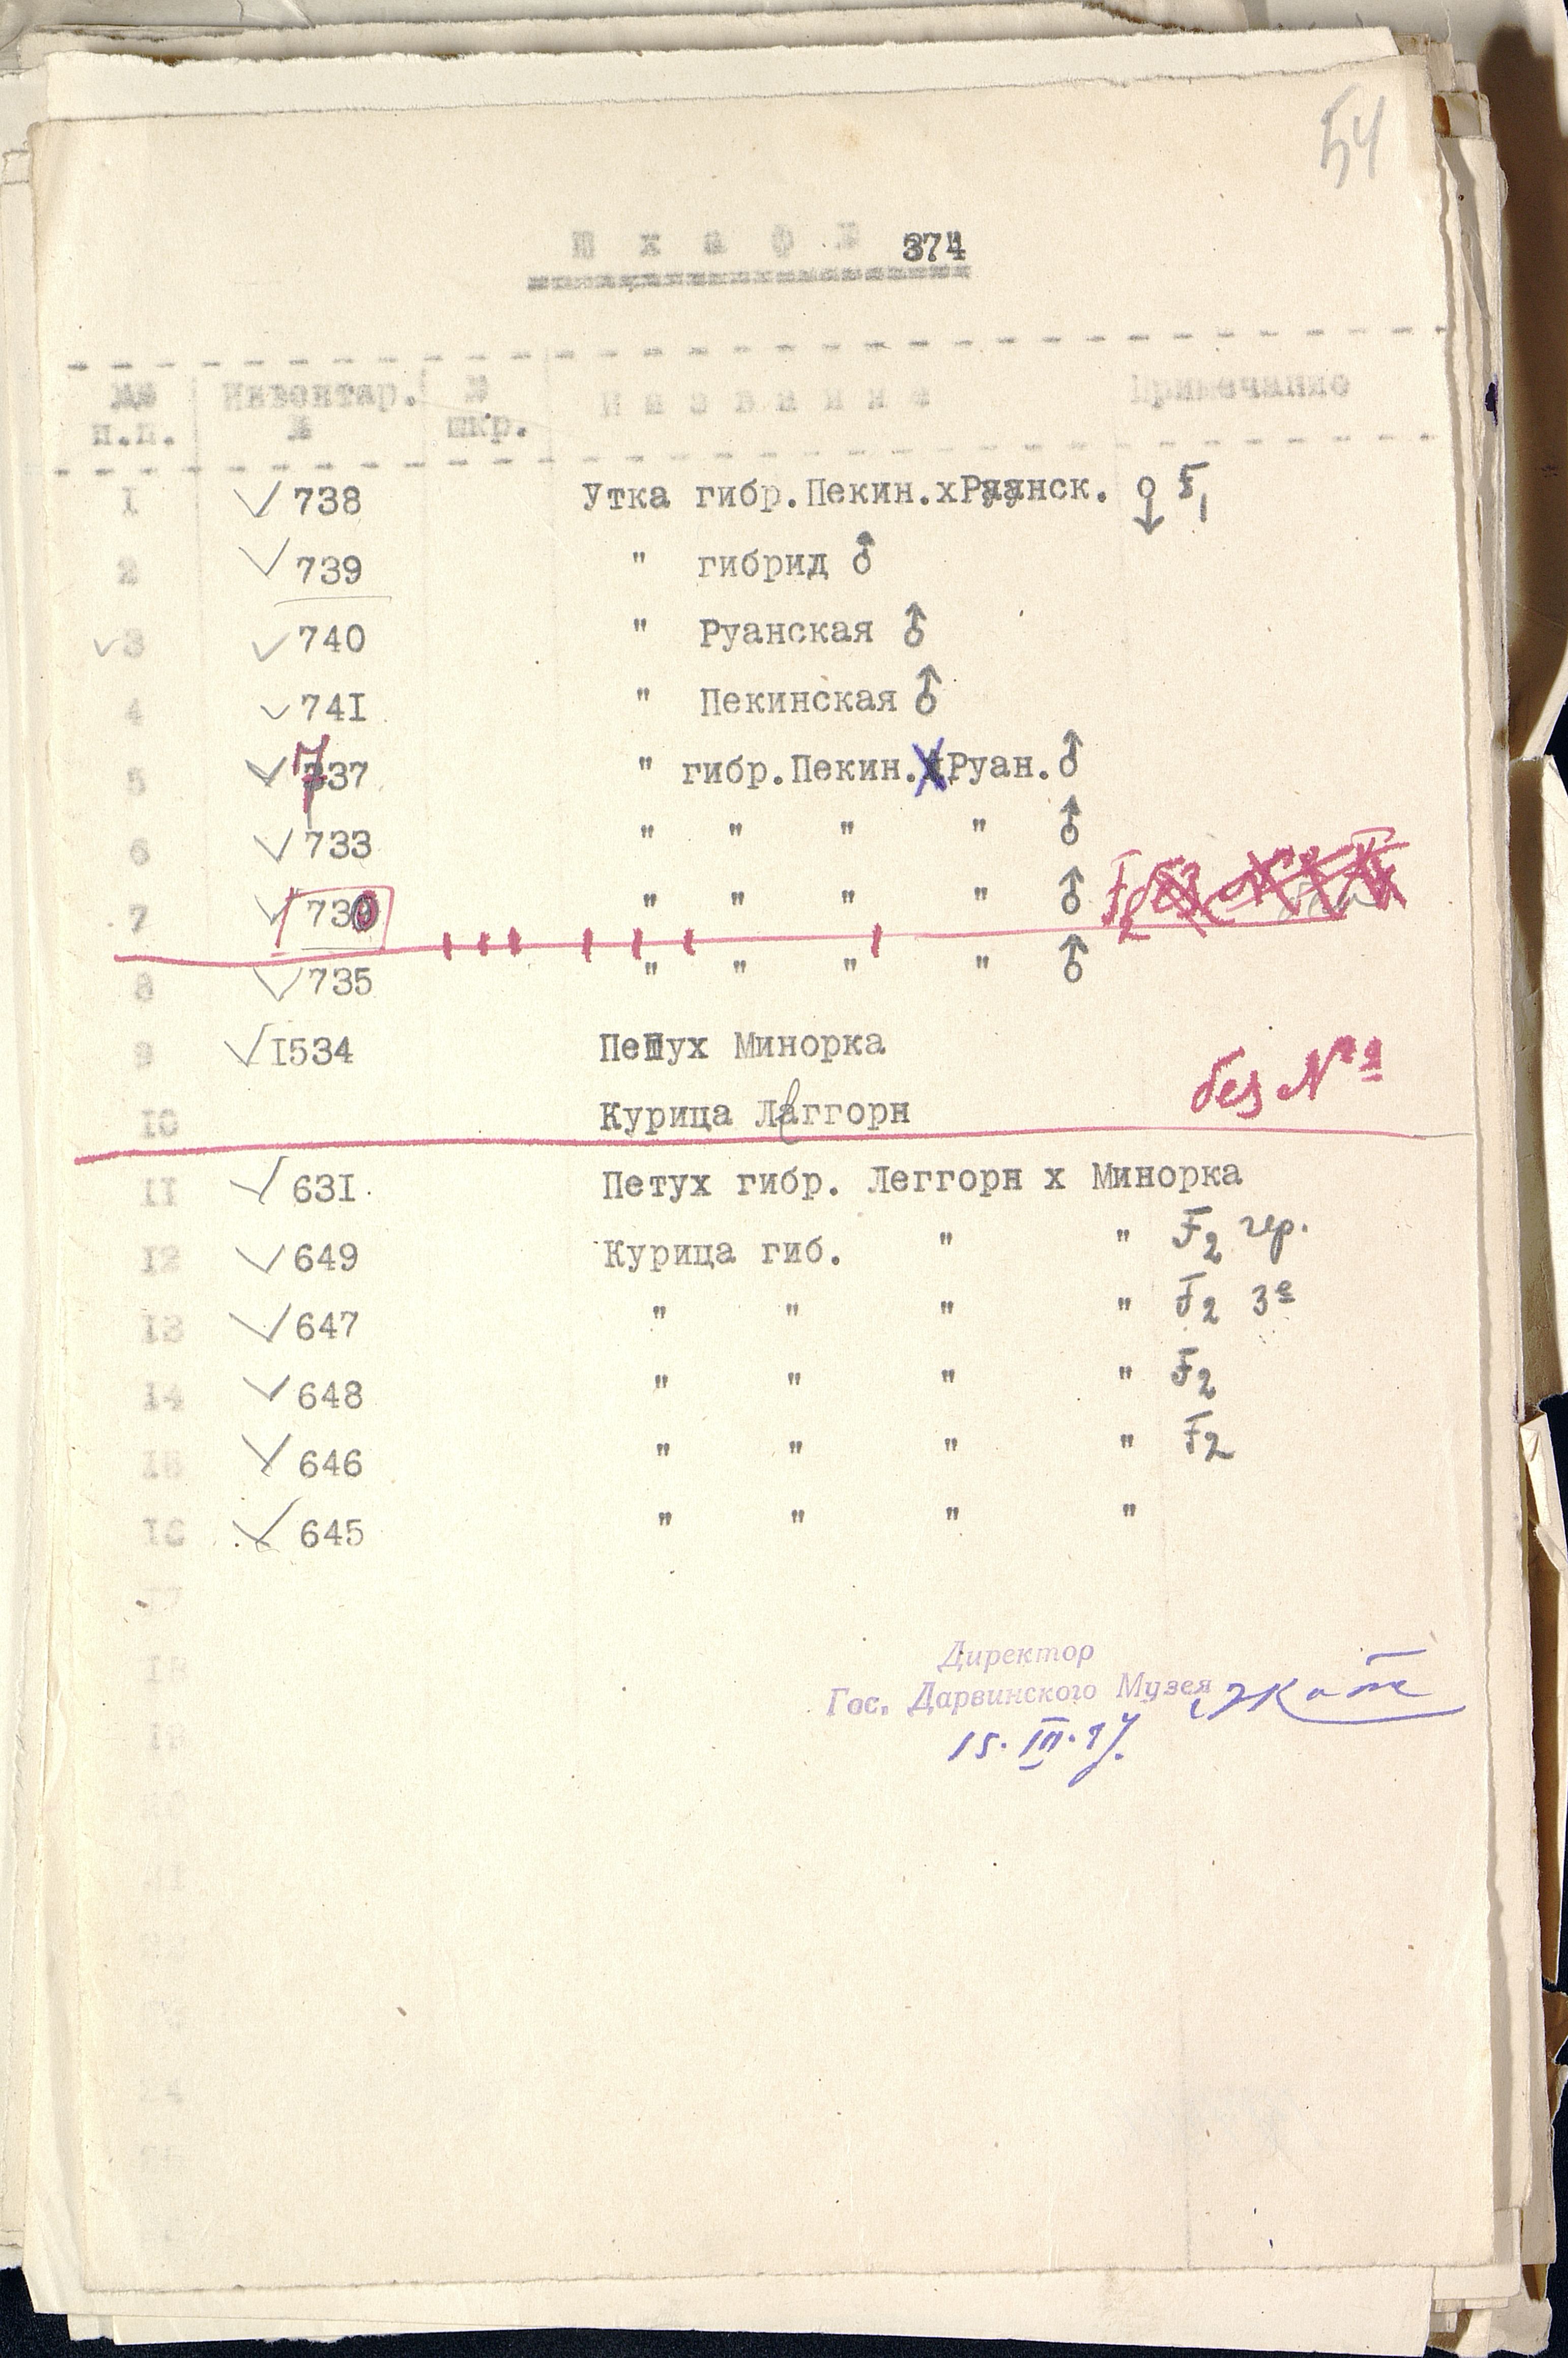 54
Ш к а ф № 374
№№ Инвентар. № Н а з в а н и е Примечание
п.п. № шкр.
1 738 Утка гибр.Пекин.хРуанск. ♀ F1
2 739 " гибрид ♂
3 740 " Руанская ♂
4 741 " Пекинская ♂
5 737 " гибр.Пекин.хРуан.♂
6 733 " " " " ♂
7 730 " " " " ♂ F2
8 735 " " " " ♂
9 1534 Петух Минорка
10 Курица Леггорн без №
11 631. Петух гибр. Леггорн х Минорка
12 649 Курица гиб. " " F2 чер.
13 647 " " " " F2
14 648 " " " " F2
15 646 " " " " F2
16 645 " " " "
17
18
19
20
21
22
23
24
25
Директор
Гос. Дарвинского Музея
15.III.47.